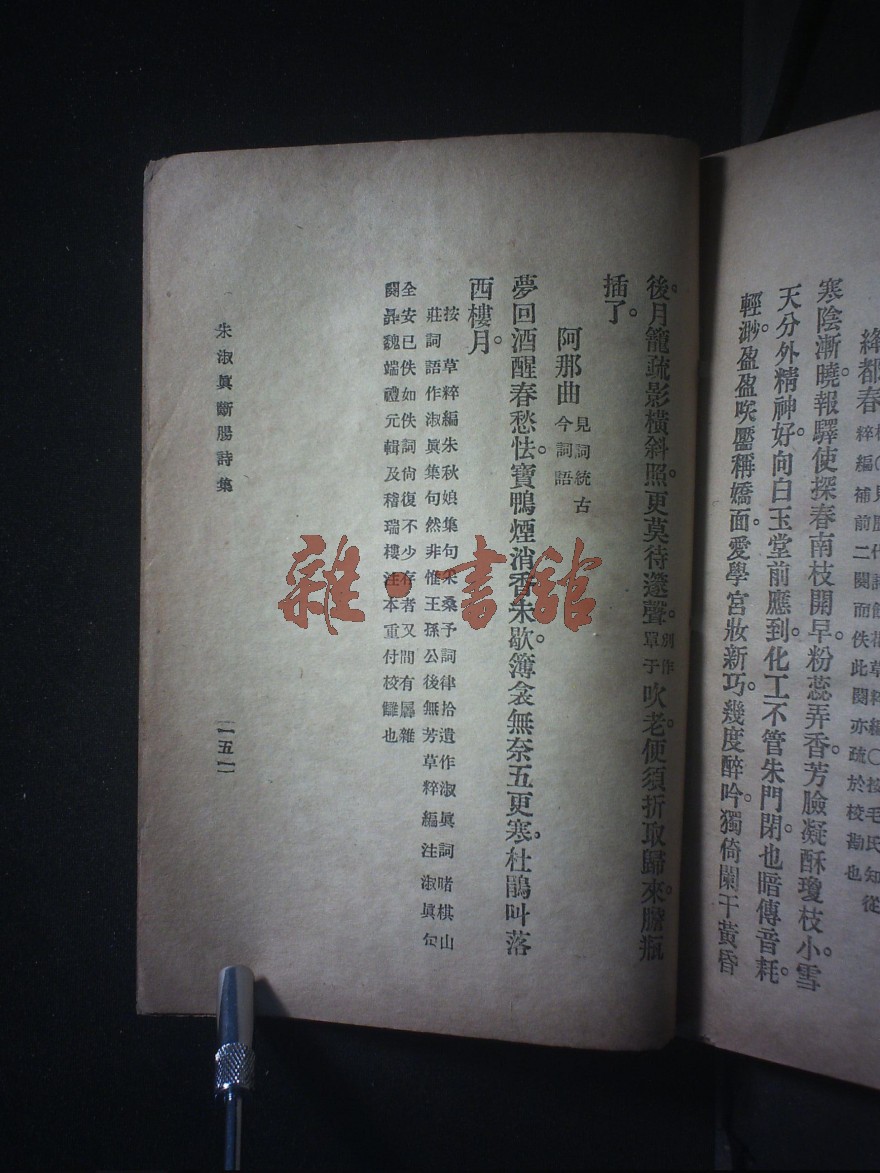 絳都春
粹編補前二闋而佚此闋亦疏於校勘也
寒陰漸曉。報驛使探春。南枝開早。粉蕊弄香。芳臉凝酥瓊枝小。雪
天分外精神好。向白玉堂前應到。化工不管朱門閉。也暗傳音耗。
輕渺盈盈笑靨。稱嬌面。愛學宮妝新巧。幾度醉吟。獨倚闌干黃昏
後。月籠疏影橫斜照。更莫待邃聲。別作單于吹老。便須折取歸來。膽瓶
插了。
阿那曲 見詞統古今詞語
夢回酒醒春愁怯。寶鴨煙消香未歇。薄衾無奈五更寒。杜鵑叫落
西樓月。
按草粹編朱秋娘集句采桑子詞律拾遺作淑眞詞啫棋山
莊詞語作淑眞集句然非惟王孫公後無芳草粹編注淑眞句
全安已佚如佚詞尙復不少存者又間有羼雜
闋爲魏端禮元輯及稽瑞樓注本重付校讎也
朱淑眞斷腸詩集
一五一
雜·書館